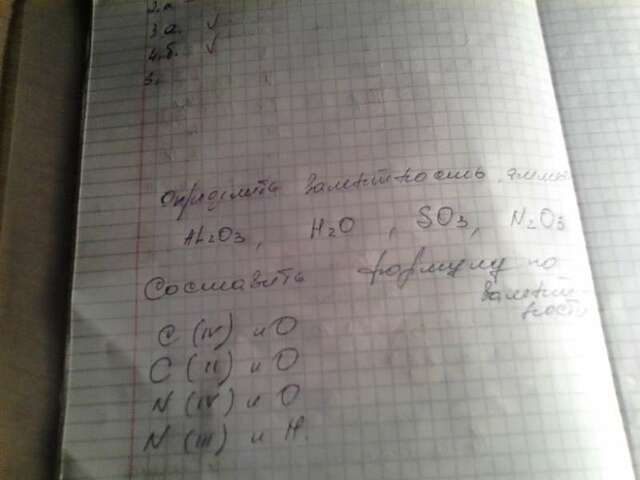 3 а. ✓
4. б. ✓
5.
Определить валентность
Al2O3, H2O, SO3, N2O3
Составить формулу по
валент-
ности
C (IV) и O
C (II) и O
N (IV) и O
N (III) и H.